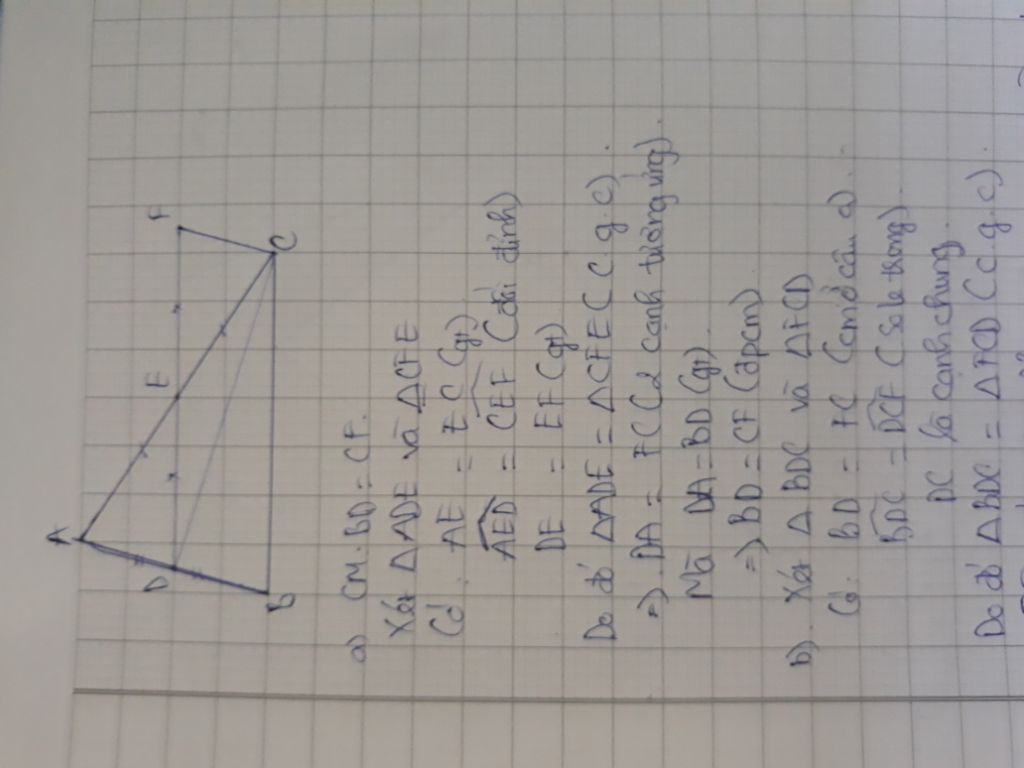 A
D
E
F
B
C
a) CM. BD = CF.
Xét ΔADE và ΔCFE
Có. AE = EC (gt)
AED = CEF (đối đỉnh)
DE = EF (gt)
Do đó ΔADE = ΔCFE (C.g.C)
=> DA = FC (2 cạnh tương ứng).
Mà DA = BD (gt)
=> BD = CF (đpcm)
b). Xét ΔBDC và ΔFCD
Có. BD = FC (cmở câu a).
BDC = DCF (So le trong)
DC là cạnh chung.
Do đó ΔBDC = ΔFCD (C.g.C)